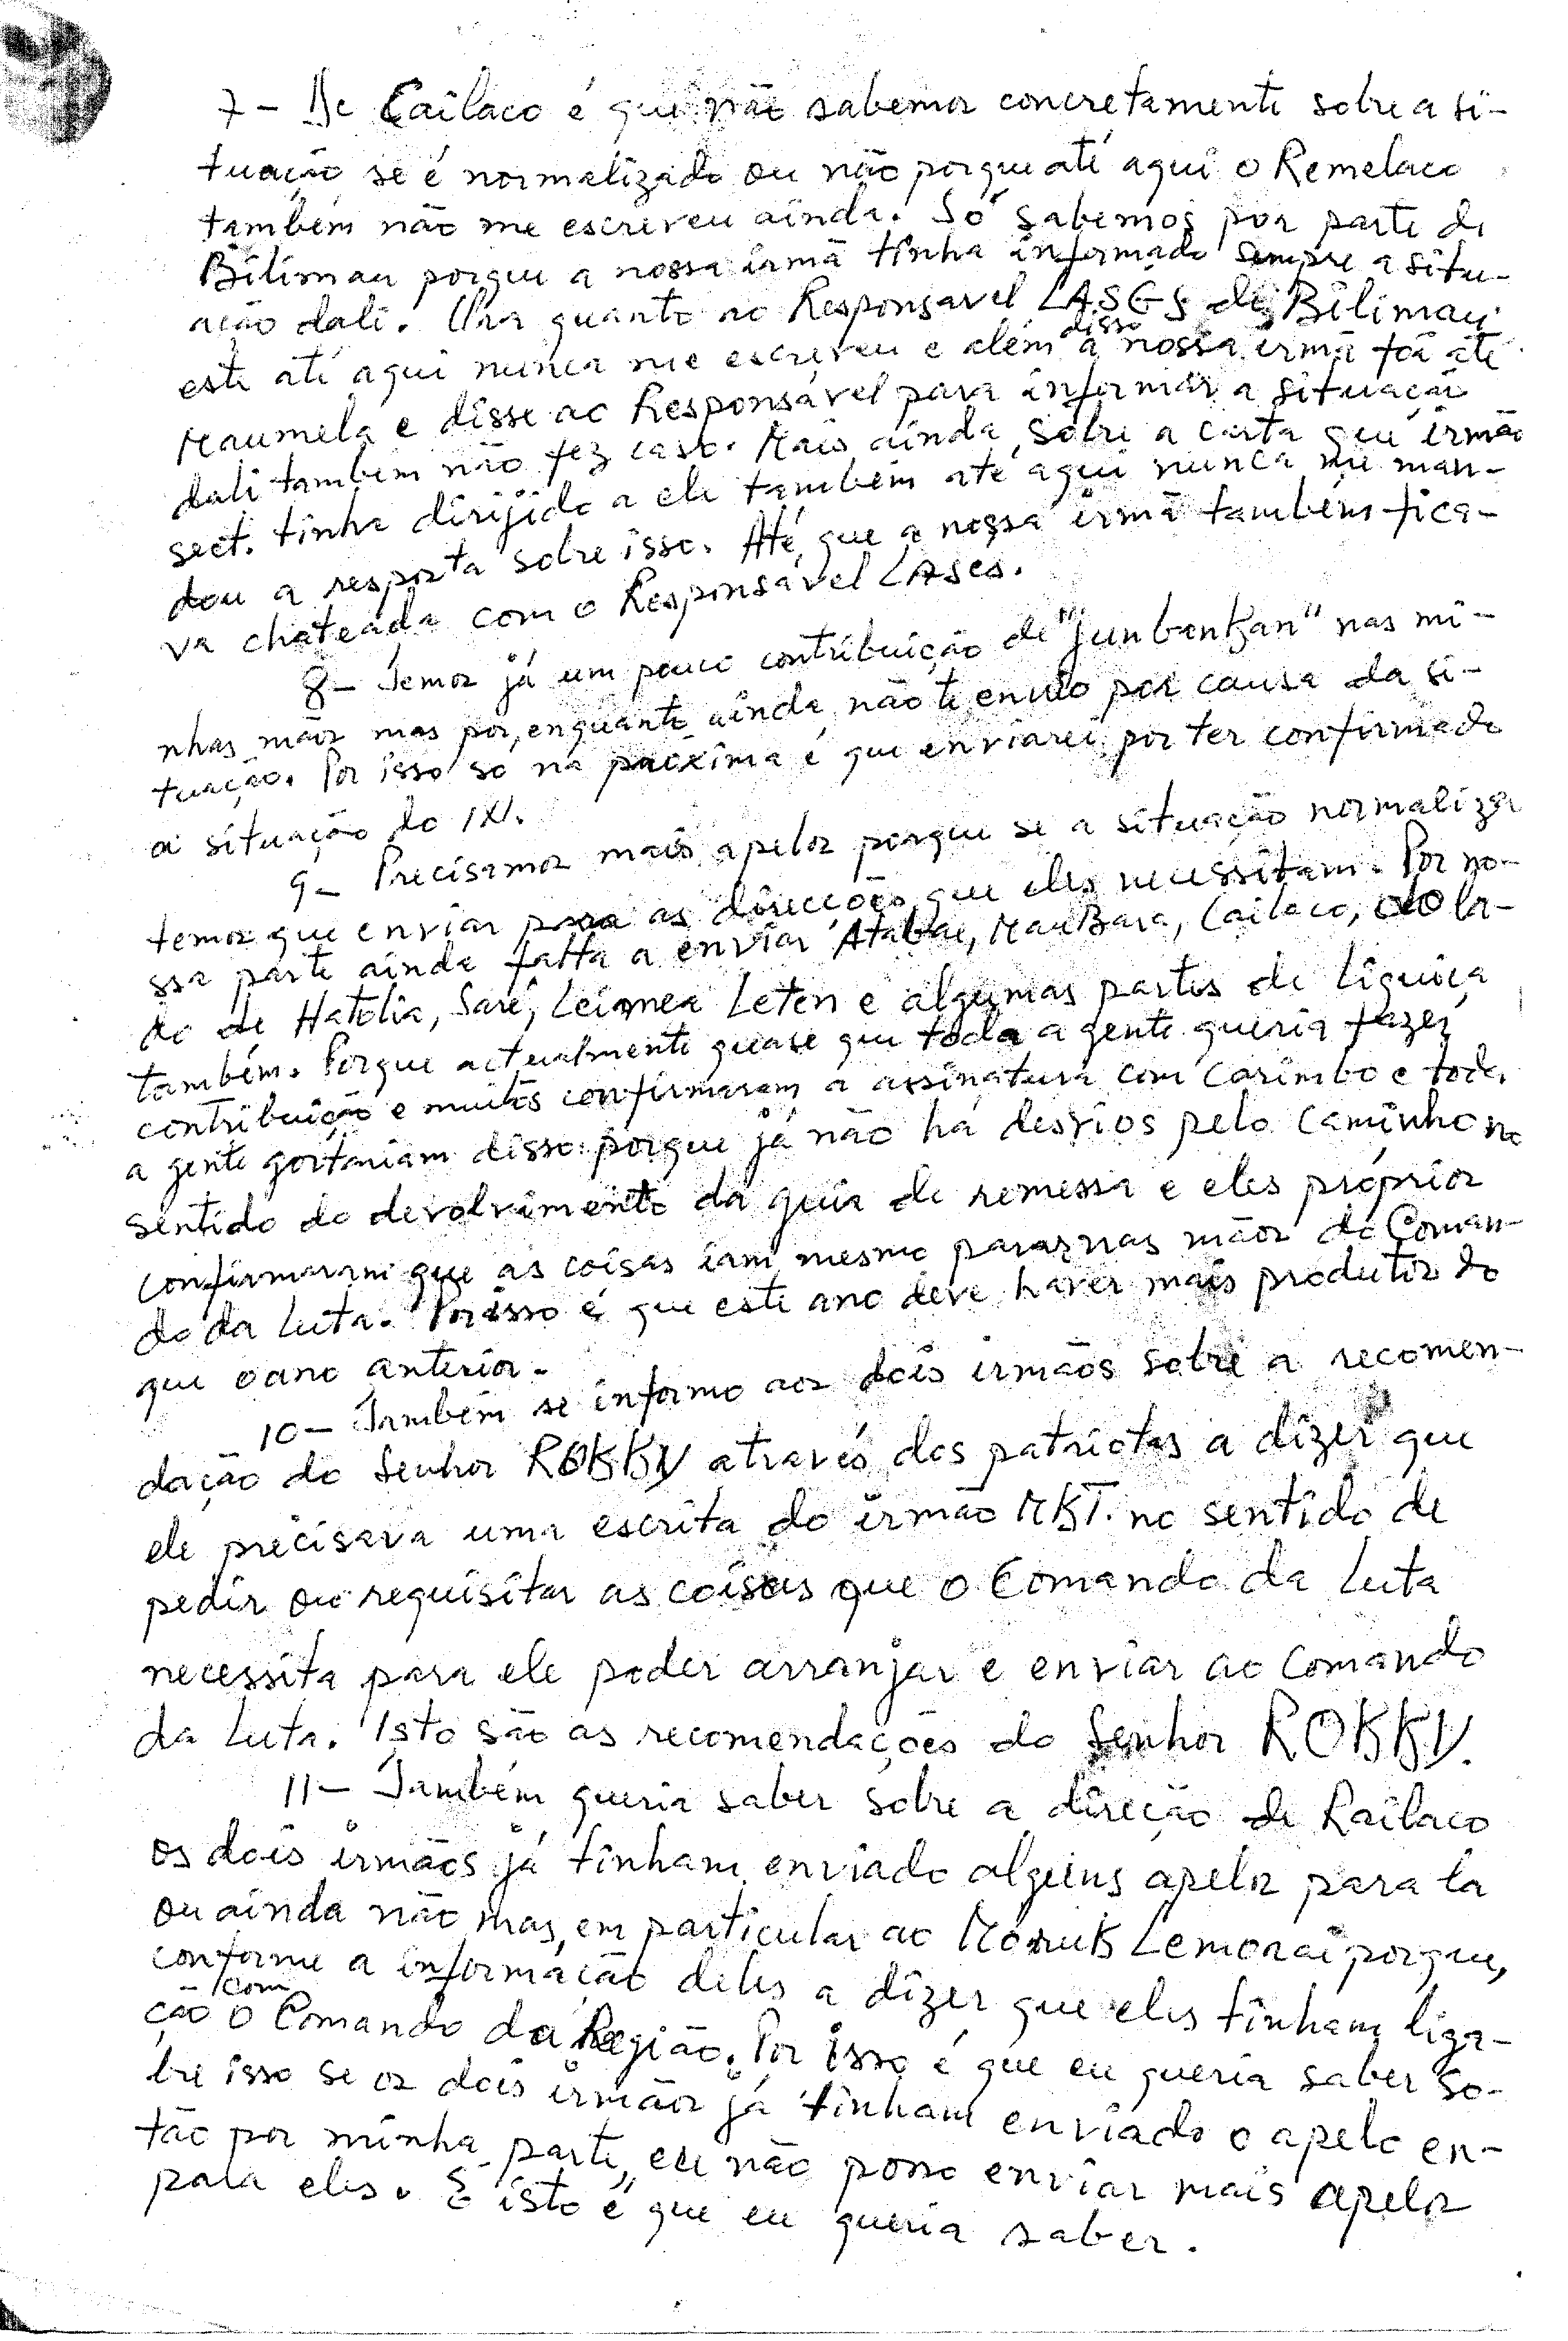 7 – De Cailaco é que não sabemos concretamente sobre a si-
tuação se é normalizado ou não porque até aqui o Remelaco
também não me escreveu ainda. Só sabemos por parte de
Bilimau porque a nossa irmã tinha informado sempre a situ-
ação dali. Ora quanto ao Responsavel CASES de Bilimau
este até aqui nunca me escreveu e além disso a nossa irmã foi até
Maumela e disse ao Responsável para informar a situação
dali também não fez caso. Mais ainda, sobre a carta que irmão
sect. tinha dirijido a ele também até aqui nunca me man-
dou a resposta sobre isso. Até que a nossa irmã também fica-
va chateada com o Responsável CASES.
8 – Temos já um pouco contribuição de "junbenkan" nas mi-
nhas mãos mas por enquanto ainda não te envio por causa da si-
tuação. Por isso só na próxima é que enviarei por ter confirmado
a situação do IXI.
9 – Precisamos mais apelos porque se a situação normaliza
temos que enviar para as direcções que eles necessitam. Por no-
ssa parte ainda falta a enviar Atabae, MauBara, Cailaco, do la-
do de Hatolia, Saré, Leimea Leten e algumas partes de Liquiça
também. Porque actualmente quase que toda a gente queria fazer
contribuição e muitos confirmaram a assinatura com Carimbo e toda
a gente gostariam disso porque já não há desvios pelo caminho no
sentido do devolvimento da guia de remessa e eles próprios
confirmaram que as coisas iam mesmo parar nas mãos do Coman-
do da Luta. Por isso é que este ano deve haver mais produtos do
que o ano anterior.
10 – Também se informo aos dois irmãos sobre a recomen-
dação do Senhor ROKKY através dos patriotas a dizer que
ele precisava uma escrita do irmão MKT. no sentido de
pedir ou requisitar as coisas que o Comando da Luta
necessita para ele poder arranjar e enviar ao Comando
da Luta. Isto são as recomendações do Senhor ROKKY.
11 – Também queria saber sobre a direção de Railaco
os dois irmãos já tinham enviado alguns apelos para la
ou ainda não, mas, em particular ao Móruk Lemorai porque,
conforme a informação deles a dizer que eles tinham liga-
ção com o Comando da Região. Por isso é que eu queria saber so-
bre isso se os dois irmãos já tinham enviado o apelo en-
tão por minha parte, eu não posso enviar mais apelos
para eles. E isto é que eu queria saber.